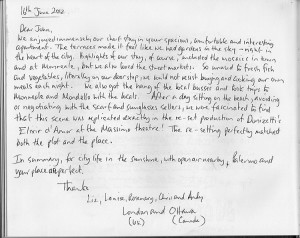 16th June 2002
Dear Joan,
We enjoyed immensely our short stay in your spacious, comfortable and interesting
apartment. The terraces made it feel like we had gardens in the sky - right in
the heart of the city. Highlights of our stay, of course, included the mosaics in town
and at Monreale, but we also loved the street markets. So unused to fresh fish
and vegetables, literally on our doorstep, we could not resist buying and cooking our own
meals each night. We also got the hang of the local buses and took trips to
Monreale and Mondello with the locals. After a day sitting on the beach, avoiding
or negotiating with the scarf and sunglasses sellers, we were fascinated to find
that this scene was replicated exactly in the re-set production of Donizetti's
Elisir d'Amor at the Massimo theatre! The re-setting perfectly matched
both the plot and the place.
In summary, for city life in the sunshine, with opera nearby, Palermo and
your place are perfect.
Thanks
Liz, Louise, Rosemary, Chris and Andy
London and Ottawa
(UK) (Canada)